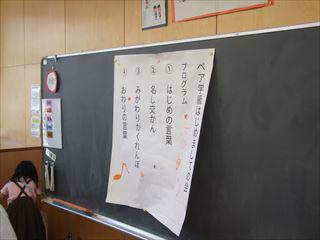 ペア学級はじめましての会
プログラム
① はじめの言葉
② 名し交かん
③ みがわりかくれんぼ
④ おわりの言葉